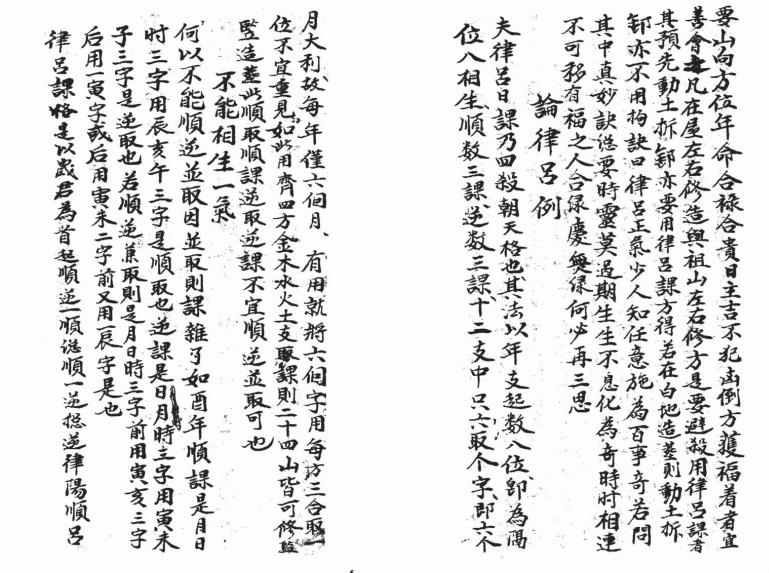 要山向方位年命合祿合貴日主吉不犯凶倒方獲福着者宜
善會之凡在屋左右修造與祖山左右修方是要避殺用律呂課者
其預先動土拆卸亦要用律呂課方得若在白地造葬則動土拆
卸亦不用拘訣曰律呂正氣少人知任意施為百事奇若問
其中真妙訣總要時靈莫過期生生不息化為奇時時相連
不可移有福之人合緣慶無緣何必再三思
論律呂例
夫律呂日課乃四殺朝天格也其法以年支起數八位即為隔
位八相生順數三課逆数三課十二支中只六取个字即六个
月大利故每年僅六個月有用就將六個字用每方三合取一
位不宜重見如此用齊四方金木水火土支取課則二十四山皆可修監
竪造葬此順取順課逆取逆課不宜順逆並取可也
不能相生一氣
何以不能順逆並取因並取則課雜了如酉年順課是月日
时三字用辰亥午三字是順取也逆課是日月時三字用寅未
子三字是逆取也若順逆兼取則是月日時三字前用寅亥三字
后用一寅字或后用寅未二字前又用一辰字是也
律呂課格是以歲君為首起順逆一順總順一逆總逆律陽順呂